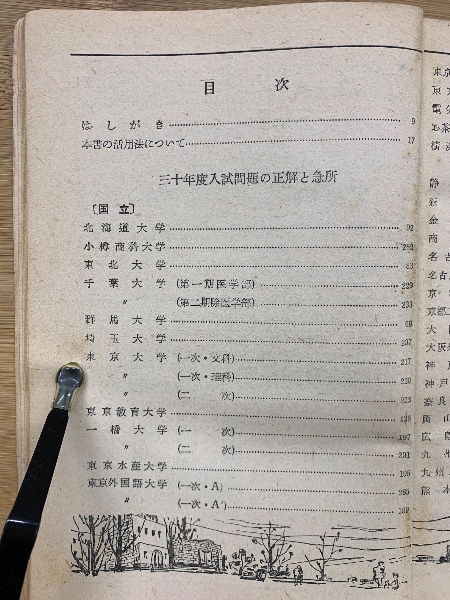 目次
はしがき……9
本書の活用法について……17
三十年度入試問題の正解と急所
〔国立〕
北海道大学……92
小樽商科大学……252
東北大学……83
千葉大学(第一期医学部)……229
〃(第二期除医学部)……233
群馬大学……69
埼玉大学……237
東京大学(一次・文科)……217
〃(一次・理科)……220
〃(二次)……223
東京教育大学……
一橋大学(一次)……197
〃(二次)……201
東京水産大学……
東京外国語大学(一次・A)……
〃(一次・A')……
静
新
金
商
名古
名古
京
京都
大
大阪
神
神戸
奈良
岡山
広
九州
九州
熊本